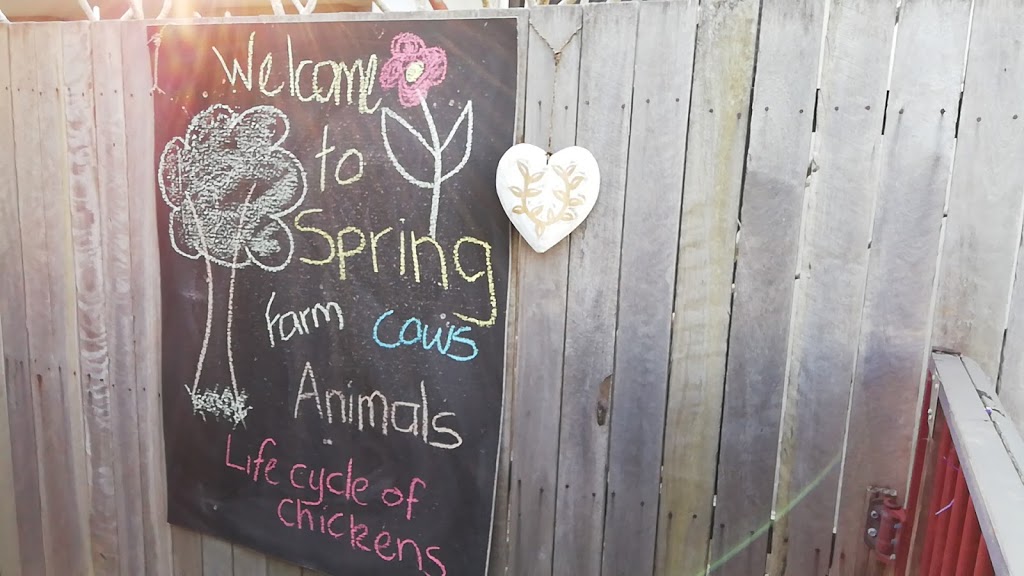 Welcome
to
Spring
Farm cows
Animals
Life cycle of
chickens